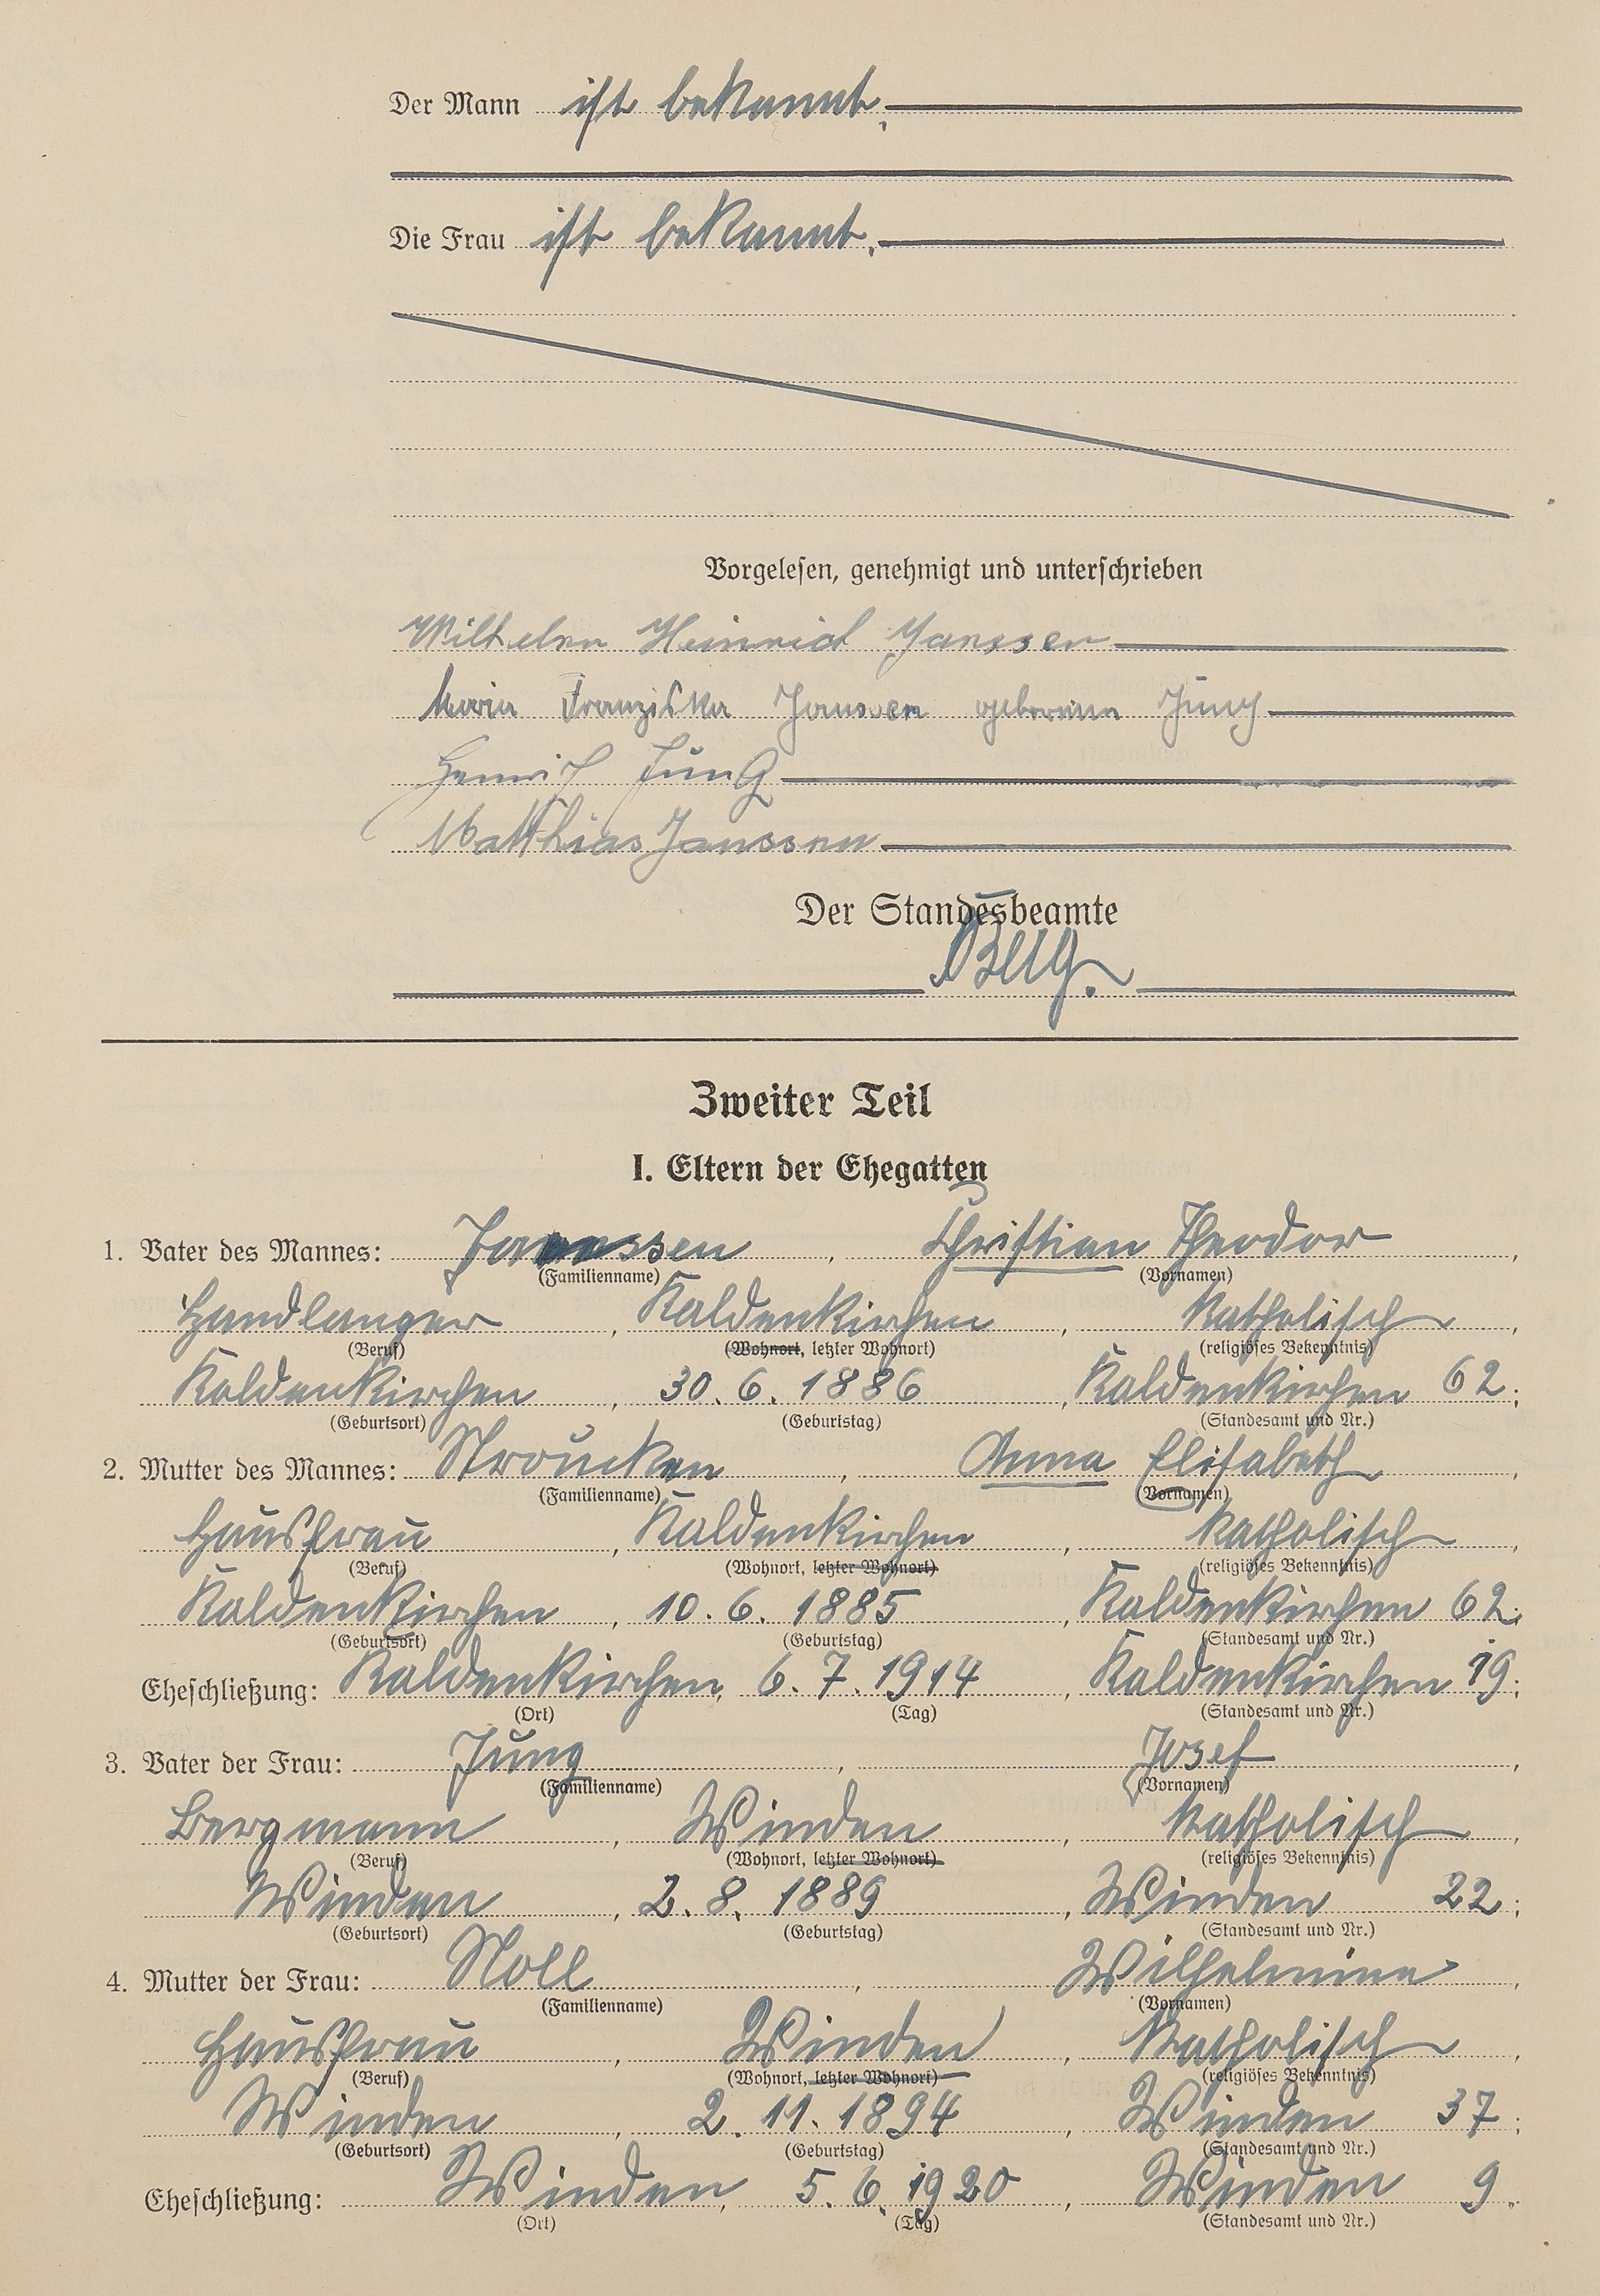 Der Mann ist bekannt.
Die Frau ist bekannt.
Vorgelesen, genehmigt und unterschrieben
Wilhelm Heinrich Janssen
Maria Franziska Janssen geborene Jung
Heinrich Jung
Matthias Janssen
Der Standesbeamte
Zweiter Teil
I. Eltern der Ehegatten
1. Vater des Mannes: Janssen, Christian Theodor,
(Familienname) (Vornamen)
Handlanger, Kaldenkirchen, katholisch,
(Beruf) (Wohnort, letzter Wohnort) (religiöses Bekenntnis)
Kaldenkirchen, 30. 6. 1886, Kaldenkirchen 62;
(Geburtsort) (Geburtstag) (Standesamt und Nr.)
2. Mutter des Mannes: Stroucken, Anna Elisabeth,
(Familienname) (Vornamen)
Hausfrau, Kaldenkirchen, katholisch,
(Beruf) (Wohnort, letzter Wohnort) (religiöses Bekenntnis)
Kaldenkirchen, 10. 6. 1885, Kaldenkirchen 62;
(Geburtsort) (Geburtstag) (Standesamt und Nr.)
Eheschließung: Kaldenkirchen, 6. 7. 1914, Kaldenkirchen 19;
(Ort) (Tag) (Standesamt und Nr.)
3. Vater der Frau: Jung, Josef,
(Familienname) (Vornamen)
Bergmann, Winden, katholisch,
(Beruf) (Wohnort, letzter Wohnort) (religiöses Bekenntnis)
Winden, 2. 8. 1889, Winden 22;
(Geburtsort) (Geburtstag) (Standesamt und Nr.)
4. Mutter der Frau: Noll, Wilhelmine,
(Familienname) (Vornamen)
Hausfrau, Winden, katholisch,
(Beruf) (Wohnort, letzter Wohnort) (religiöses Bekenntnis)
Winden, 2. 11. 1894, Winden 37;
(Geburtsort) (Geburtstag) (Standesamt und Nr.)
Eheschließung: Winden, 5. 6. 1920, Winden 9.
(Ort) (Tag) (Standesamt und Nr.)